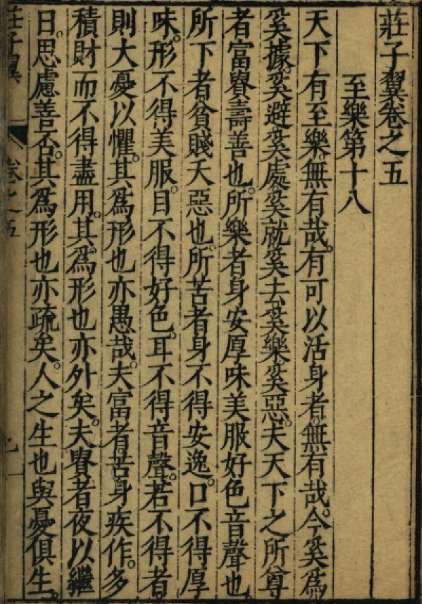 莊子翼卷之五
至樂第十八
天下有至樂無有哉。有可以活身者。無有哉。今奚爲
奚據。奚避奚處。奚就奚去。奚樂奚惡。夫天下之所尊
者富貴壽善也。所樂者身安厚味美服好色音聲也
所下者貧賤夭惡也。所苦者身不得安逸。口不得厚
味。形不得美服。目不得好色。耳不得音聲。若不得者。
則大憂以懼。其爲形也亦愚哉。夫富者苦身疾作。多
積財而不得盡用。其爲形也亦外矣。夫貴者夜以繼
日。思慮善否。其爲形也亦疏矣。人之生也與憂俱生。
莊子翼
卷之五